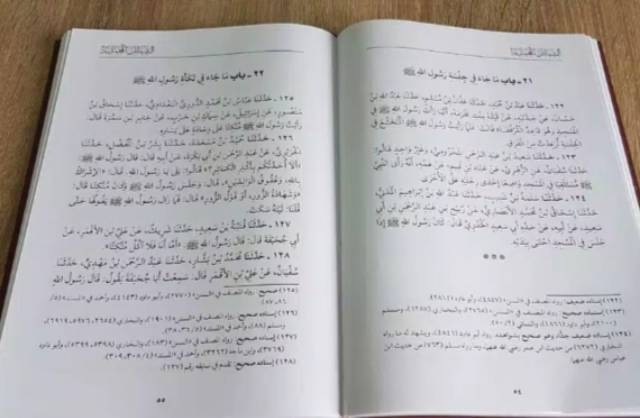 الشمائل المحمدية
٢١ - باب ما جاء في جلسة رسول الله ﷺ
١٢٢ - حدثنا عبد بن حميد، حدثنا عفان بن مسلم، حدثنا عبد الله بن
حسان، عن جدتيه، عن قيلة بنت مخرمة، أنها رأت رسول الله ﷺ في
المسجد وهو قاعد القرفصاء قالت: فلما رأيت رسول الله ﷺ المتخشع في
الجلسة أرعدت من الفرق.
١٢٣ - حدثنا سعيد بن عبد الرحمن المخزومي، وغير واحد قالوا:
حدثنا سفيان، عن الزهري، عن عباد بن تميم، عن عمه، أنه رأى النبي
ﷺ مستلقيا في المسجد واضعا إحدى رجليه على الأخرى.
١٢٤ - حدثنا سلمة بن شبيب، حدثنا عبد الله بن إبراهيم المدني،
حدثنا إسحاق بن محمد الأنصاري، عن ربيح بن عبد الرحمن بن أبي
سعيد، عن أبيه، عن جده أبي سعيد الخدري قال: كان رسول الله ﷺ إذا
جلس في المسجد احتبى بيديه.
* * *
(١٢٢) إسناده ضعيف: رواه المصنف في «السنن»
(١٢٣) إسناده صحيح: رواه المصنف في «السنن»
(١٢٤) إسناده ضعيف جدًا، وهو صحيح
٥٤
الشمائل المحمدية
٢٢ - باب ما جاء في تكأة رسول الله ﷺ
١٢٥ - حدثنا عباس بن محمد الدوري البغدادي، حدثنا إسحاق بن
منصور، عن إسرائيل، عن سماك بن حرب، عن جابر بن سمرة قال:
رأيت رسول الله ﷺ متكئا على وسادة على يساره.
١٢٦ - حدثنا حميد بن مسعدة، حدثنا بشر بن المفضل، حدثنا
الجريري، عن عبد الرحمن بن أبي بكرة، عن أبيه قال: قال رسول الله ﷺ:
«ألا أحدثكم بأكبر الكبائر؟» قالوا: بلى يا رسول الله. قال: «الإشراك
بالله، وعقوق الوالدين». قال: وجلس رسول الله ﷺ وكان متكئا قال:
«وشهادة الزور، أو قول الزور» قال: فما زال رسول الله ﷺ يقولها حتى
قلنا: ليته سكت.
١٢٧ - حدثنا قتيبة بن سعيد، حدثنا شريك، عن علي بن الأقمر، عن
أبي جحيفة قال: قال رسول الله ﷺ: «أما أنا فلا آكل متكئا».
١٢٨ - حدثنا محمد بن بشار، حدثنا عبد الرحمن بن مهدي، حدثنا
سفيان، عن علي بن الأقمر قال: سمعت أبا جحيفة يقول: قال رسول الله
(١٢٥) صحيح: رواه المصنف في «السنن» (٢٧٧٠)، وأبو داود (٤١٤٣)، وأحمد في «المسند» (٥/
(١٢٦) إسناده صحيح: رواه المصنف في «السنن» (١٩٠١)، والبخاري (٢٦٥٤، ٥٩٧٦، ٦٩١٩)،
ومسلم (٨٨)، وأحمد في «المسند» (٥/ ٣٦، ٣٨).
(١٢٧) إسناده صحيح: رواه المصنف في «السنن»
(٣٧٦٩)، وابن ماجه (٣٢٦٢)، وأحمد في «المسند» (٤/ ٣٠٨، ٣٠٩).
(١٢٨) إسناده صحيح: تقدم في سابقه رقم (١٢٧).
٥٥